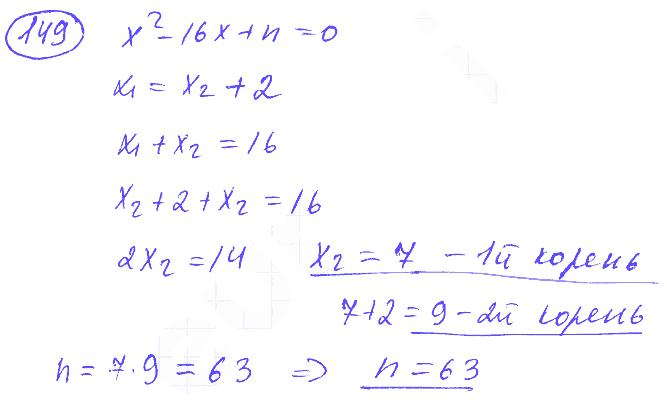 149 x² - 16x + n = 0
x₁ = x₂ + 2
x₁ + x₂ = 16
x₂ + 2 + x₂ = 16
2x₂ = 14 x₂ = 7 - 1й корень
7 + 2 = 9 - 2й корень
n = 7 · 9 = 63 ⇒ n = 63